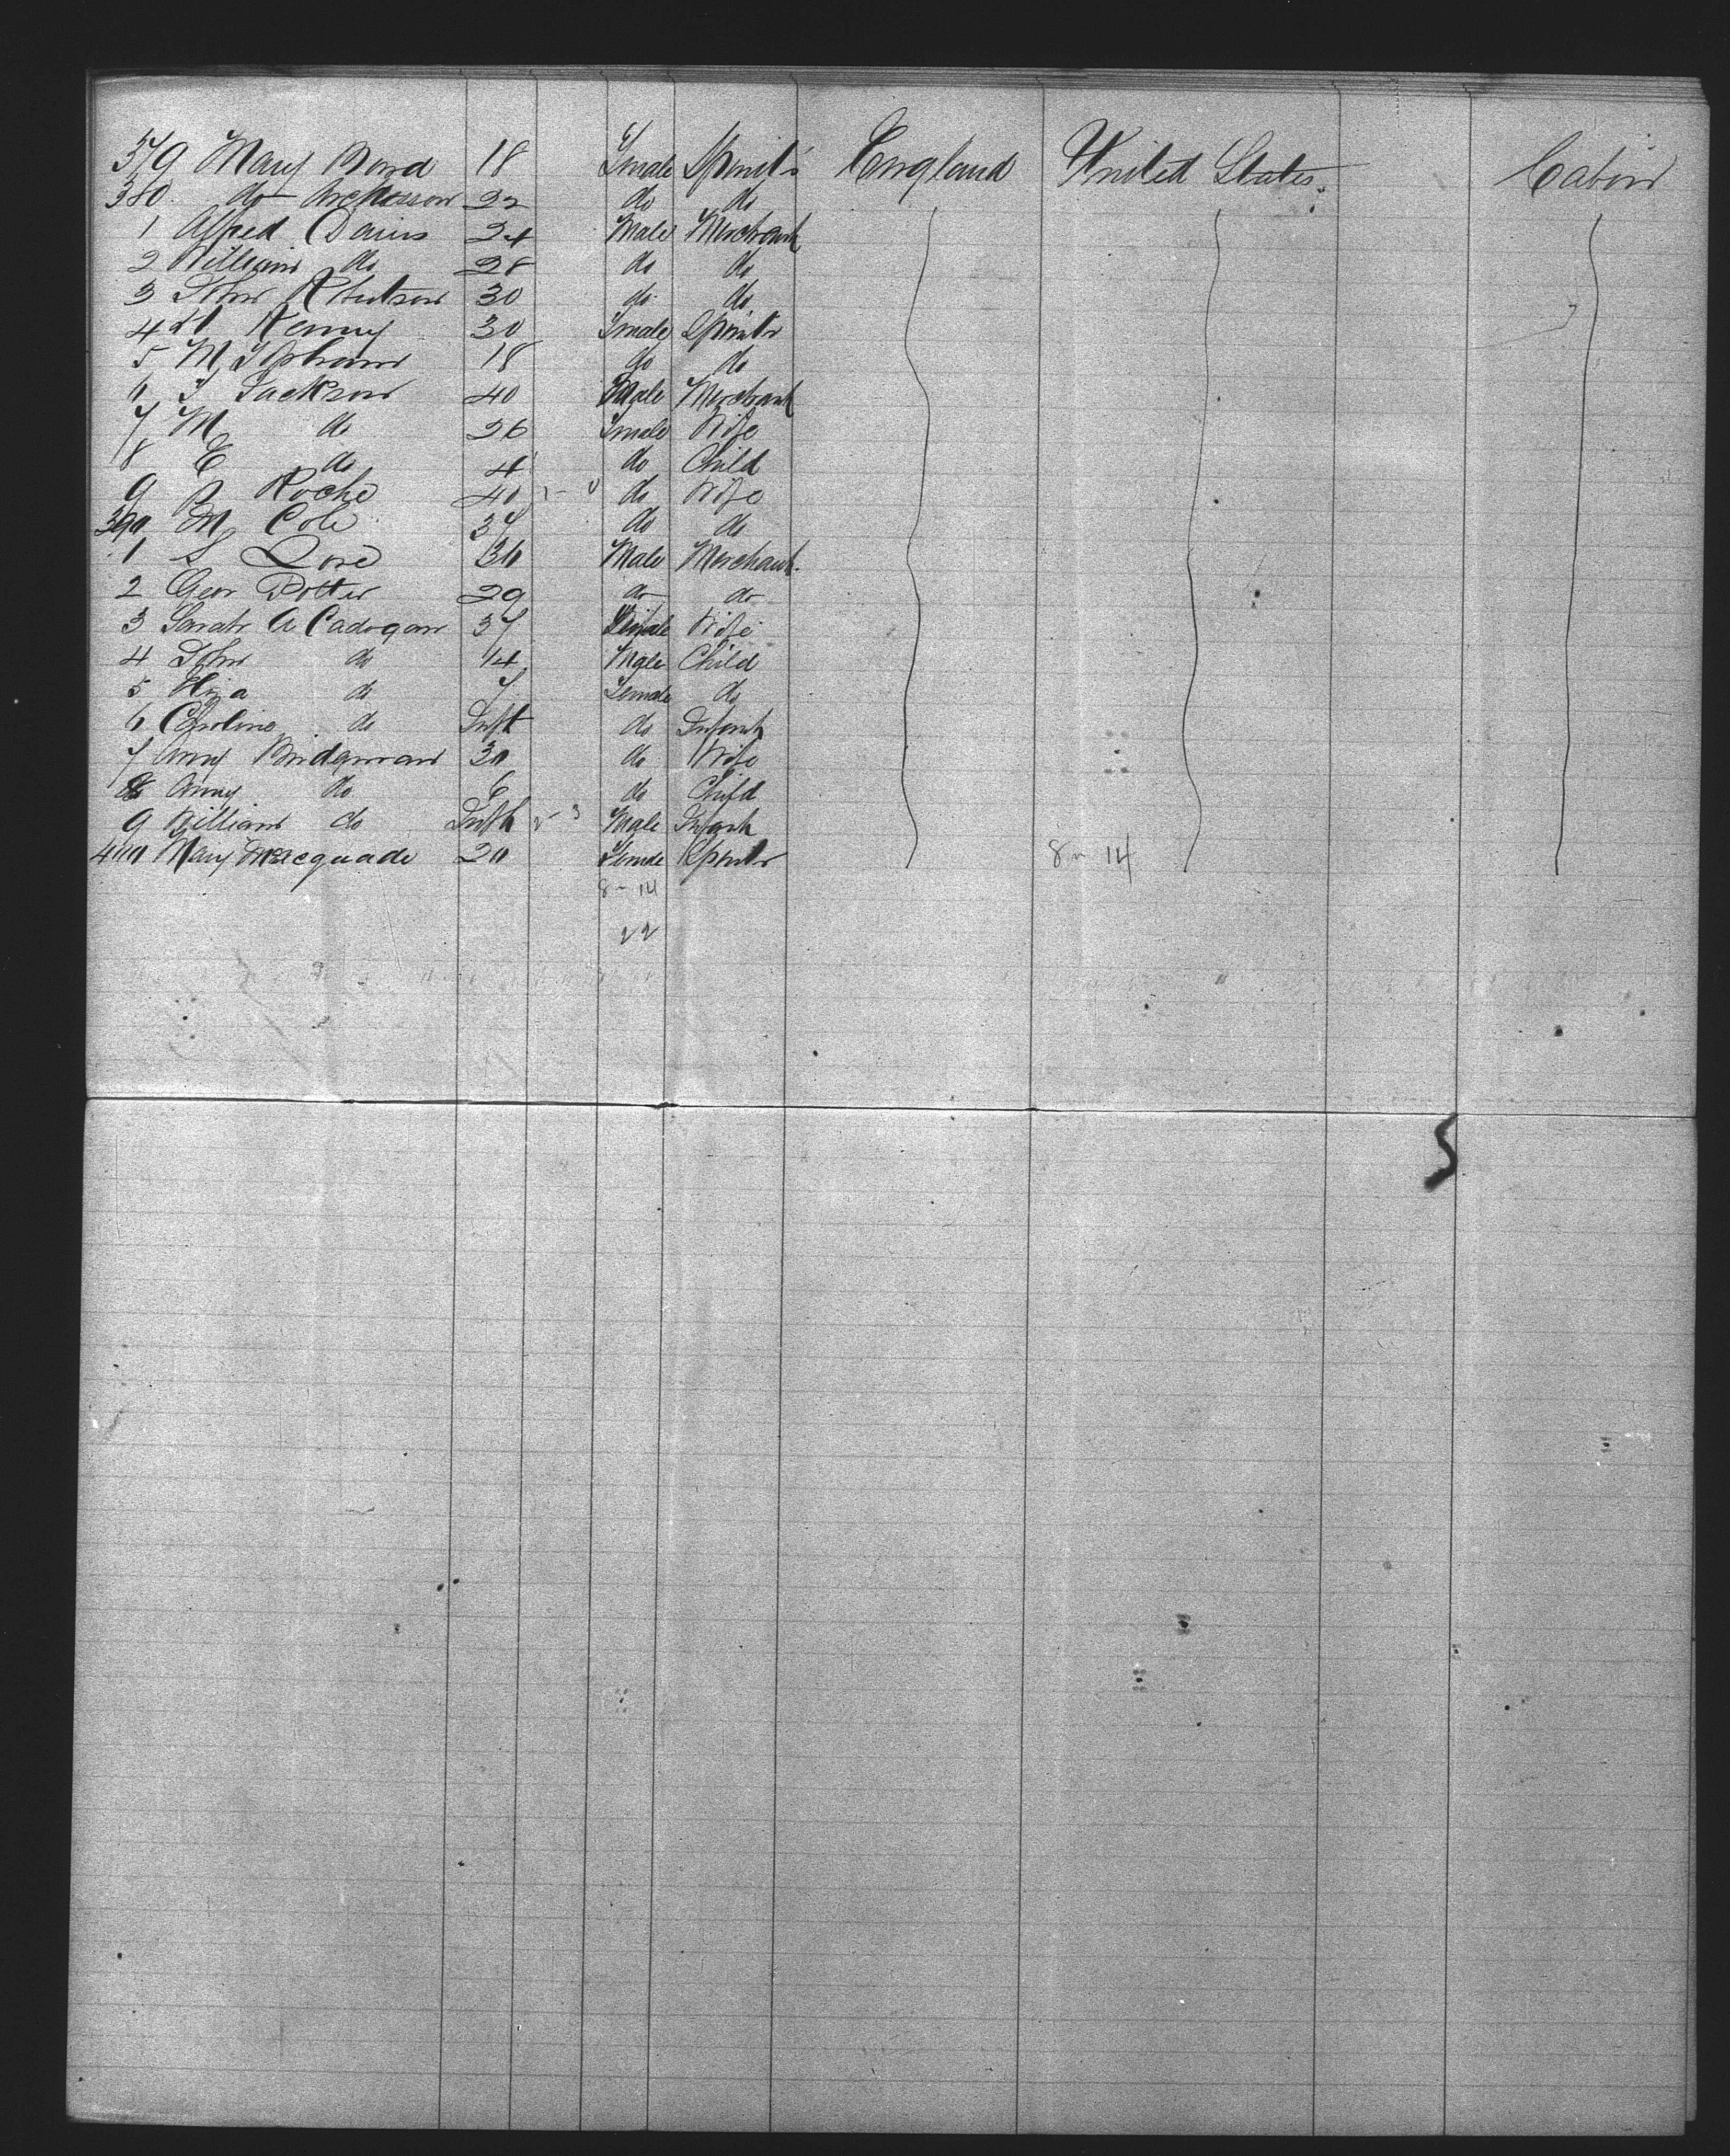 379 Mary Bond 18 Female Spinst's England United States. Cabin
380 do 22 do do
1 Alfred Davies 24 Male Merchant
2 William do 28 do do
3 John 30 do do
4 Kenny 30 Female Spinstr
5 M 18 do do
6 J Jackson 40 Male Merchant
7 M do 26 Female Wife
8 E do 4 do Child
9 Roche 40 do Wife
390 M Cole 37 do do
1 S Love 30 Male Merchant
2 Geo Potter 29 do do
3 Sarah A Cadogan 37 Female Wife
4 John do 14 Male Child
5 Eliza do 7 Female do
6 Caroline do Inft do Infant
7 Amy Bridgman 30 do Wife
8 Amy do 6 do Child
9 William do Inft 2 - 3 Male Infant
400 Mary Macquade 20 Female Spinstr 8 - 14
8 - 14
22
5